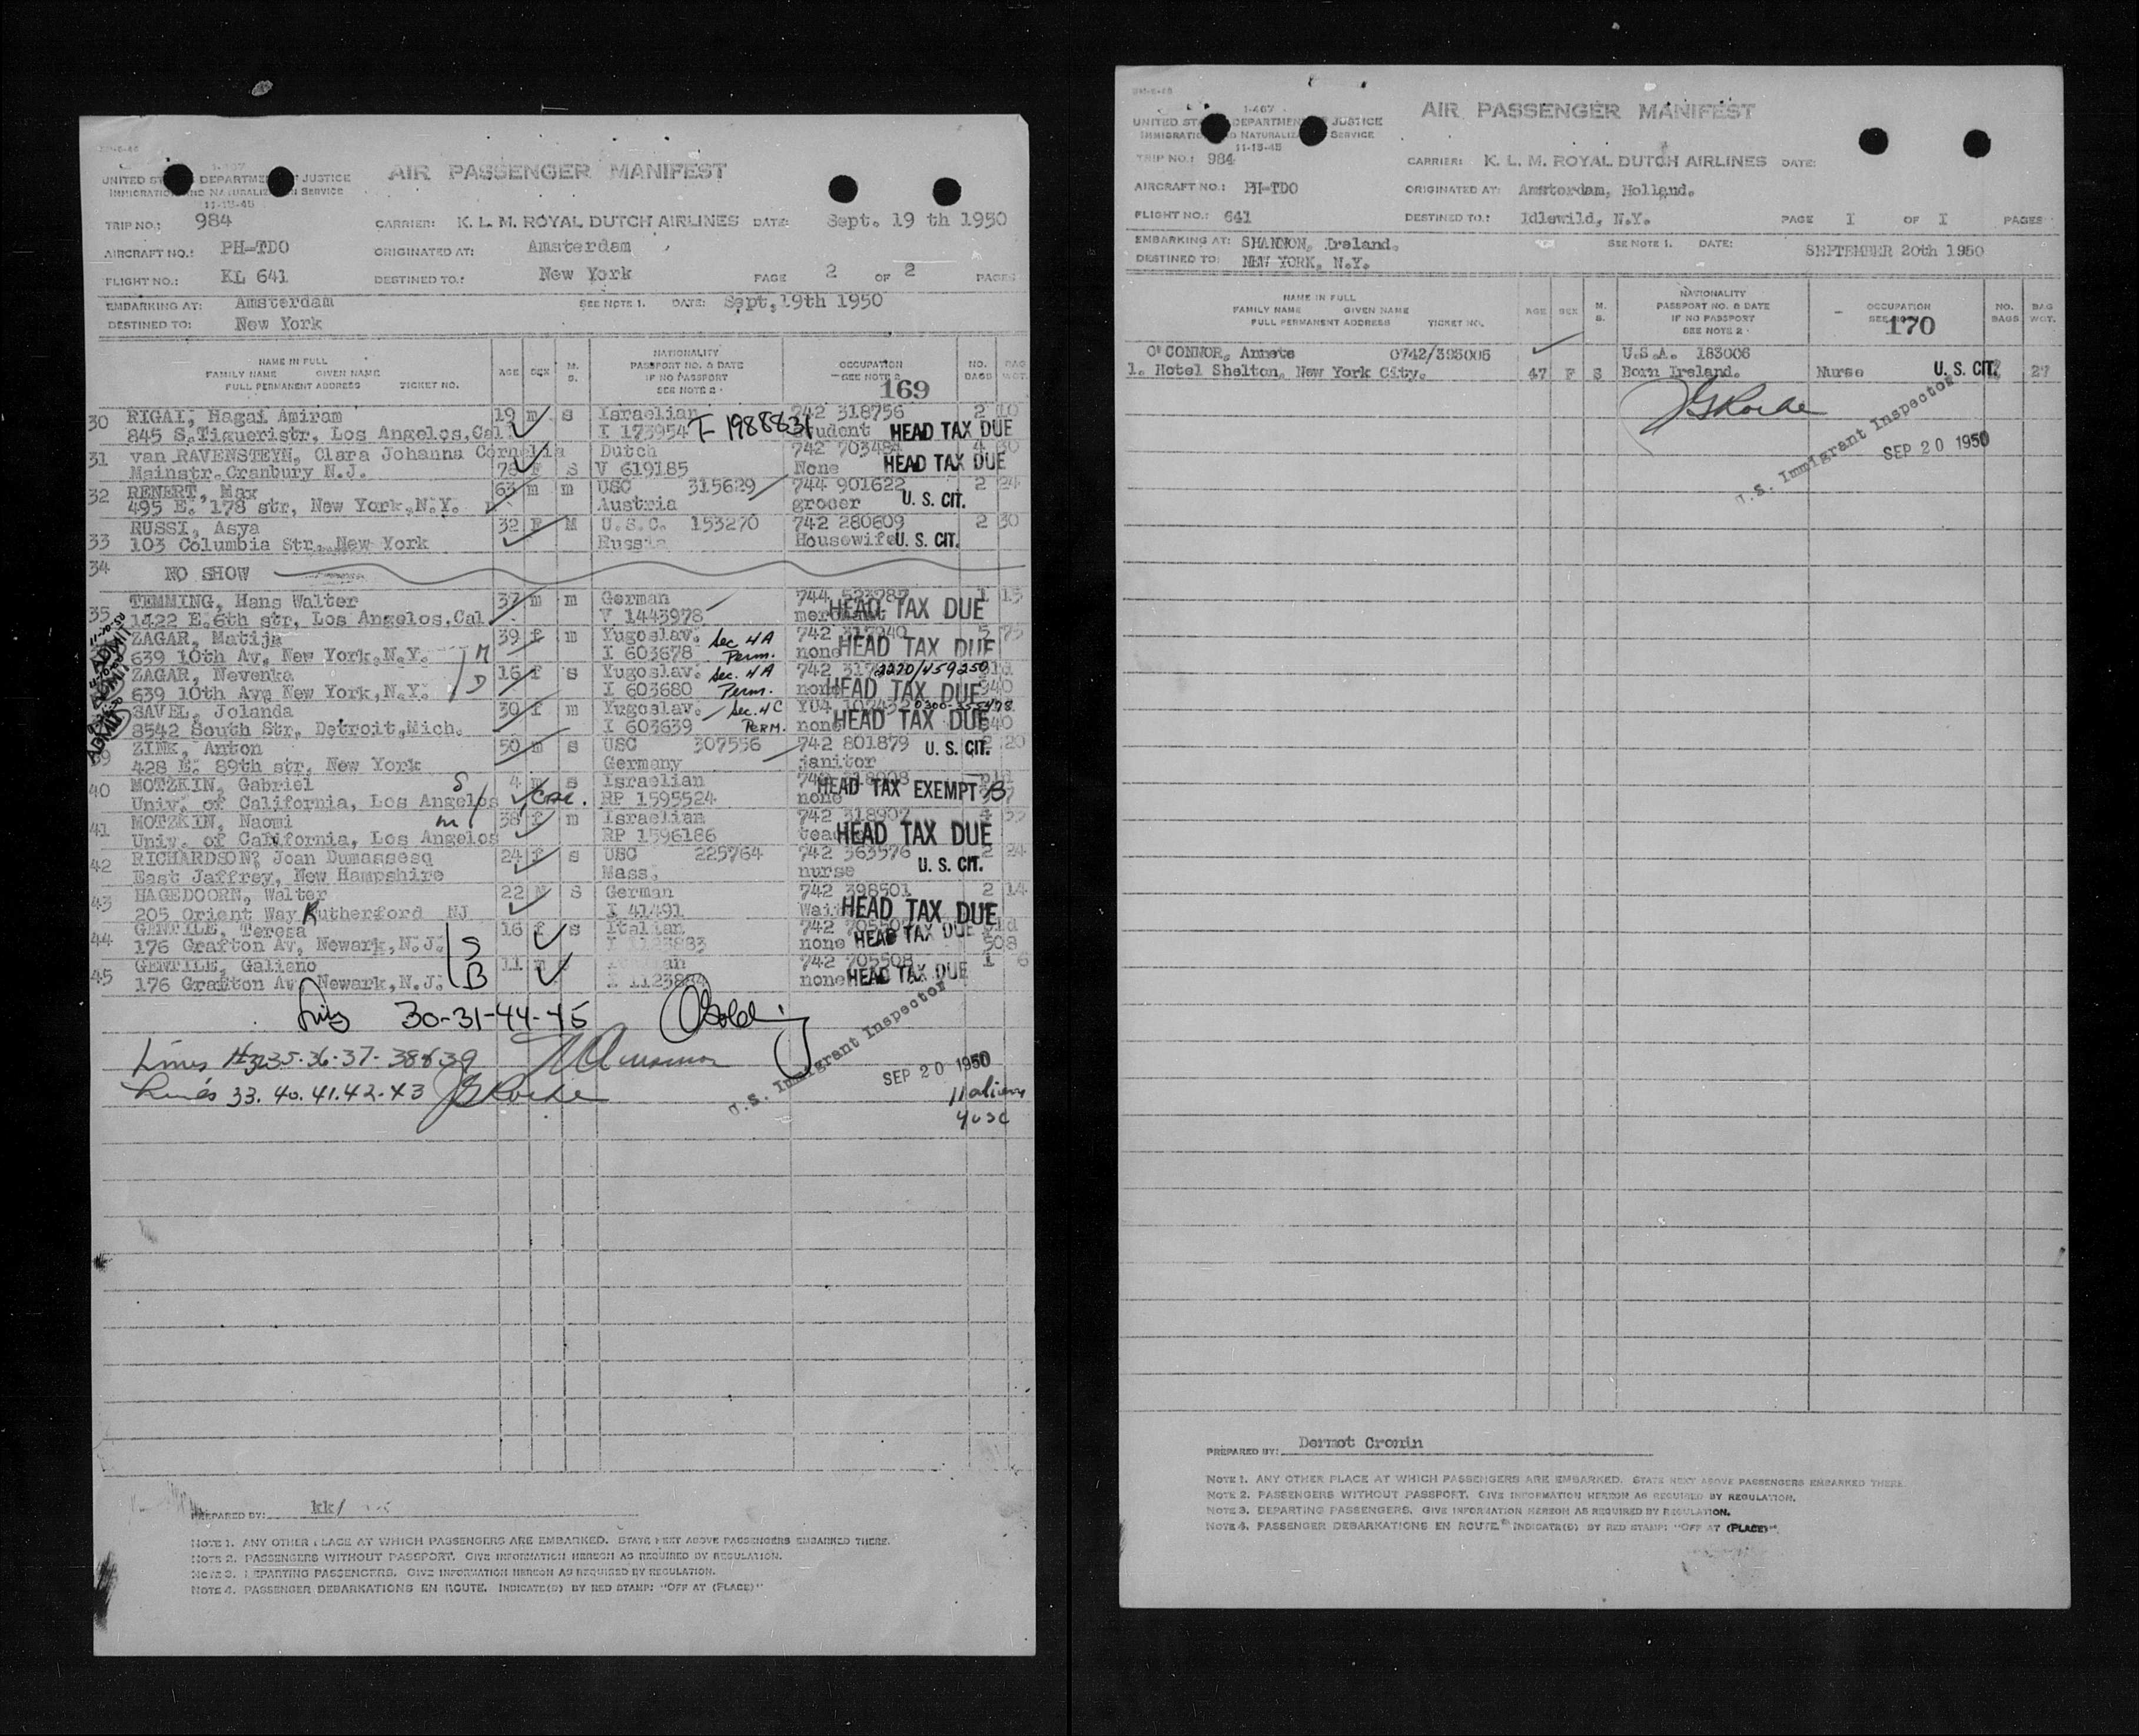 I-407
UNITED ST DEPARTME JUSTICE
IMMIGRATION AND NATURALIZ N SERVICE
11-15-45
AIR PASSENGER MANIFEST
TRIP NO.: 984 CARRIER: K. L. M. ROYAL DUTCH AIRLINES DATE: Sept. 19 th 1950
AIRCRAFT NO.: PH-TDO ORIGINATED AT: Amsterdam
FLIGHT NO.: KL 641 DESTINED TO.: New York PAGE 2 OF 2 PAGES
EMBARKING AT: Amsterdam SEE NOTE 1. DATE: Sept,19th 1950
DESTINED TO: New York
NAME IN FULL
FAMILY NAME GIVEN NAME
FULL PERMANENT ADDRESS TICKET NO.
AGE SEX M. S.
NATIONALITY
PASSPORT NO. & DATE
IF NO PASSPORT
SEE NOTE 2
OCCUPATION
SEE NOTE 3
NO. BAGS
BAG WGT.
169
30 RIGAI, Hagai Amiram 19 m s Israelian 742 318756 2 10
845 S.Tigueristr, Los Angelos,Cal. I 173954 F 1988831 student HEAD TAX DUE
31 van RAVENSTEYN, Clara Johanna Cornelia Dutch 742 703484 4 30
Mainstr.Cranbury N.J. 78 F S V 619185 None HEAD TAX DUE
32 RENERT, Max 63 m m USC 315629 744 901622 2 24
495 E. 178 str, New York,N.Y. Austria grocer U. S. CIT.
RUSSI, Asya 32 F M U.S.C. 153270 742 280609 2 30
33 103 Columbia Str. New York Russia Housewife U. S. CIT.
34 NO SHOW
TEMMING, Hans Walter 37 m m German 744 523787 1 15
35 1422 E.6th str, Los Angelos,Cal. V 1443978 merchant HEAD TAX DUE
ZAGAR, Matija 39 f m Yugoslav. Sec 4A 742 317940 5 75
639 10th Av, New York,N.Y. M I 603678 Perm. none HEAD TAX DUE
ZAGAR, Nevenka 16 f s Yugoslav. Sec. 4A 742 317 2220/459250
639 10th Ave New York,N.Y. D I 603680 Perm. none HEAD TAX DUE 940
SAVEL, Jolanda 30 f m Yugoslav. Sec. 4C YU4 102432 0300-355478
8542 South Str, Detroit,Mich. I 603639 PERM. none HEAD TAX DUE 940
ZINK, Anton 50 m s USC 307556 742 801879 U. S. CIT. 2 20
39 428 E. 89th str, New York Germany janitor
40 MOTZKIN, Gabriel S 4 m s Israelian 742 318908
Univ. of California, Los Angelos RP 1595524 none HEAD TAX EXEMPT B
41 MOTZKIN, Naomi m 38 f m Israelian 742 318907 4 55
Univ. of California, Los Angelos RP 1596186 HEAD TAX DUE
42 RICHARDSON, Joan Dumassesq 24 f s USC 225764 742 363576 2 24
East Jaffrey, New Hampshire Mass. nurse U. S. CIT.
43 HAGEDOORN, Walter 22 M S German 742 398501 2 14
205 Orient Way Rutherford NJ I 41491 HEAD TAX DUE
44 GENTILE, Teresa 16 f s Italian 742 705507
176 Grafton Av, Newark,N.J. S I 1123883 none HEAD TAX DUE 508
45 GENTILE, Galiano 11 m 742 705508 1 6
176 Grafton Av, Newark,N.J. B I 1123884 none HEAD TAX DUE
30-31-44-45
Lines #32 35-36-37-38&39
Lines 33. 40. 41. 42. 43 JG Rorke
U.S. Immigrant Inspector
SEP 20 1950
11 aliens
4 usc
PREPARED BY: kk/
NOTE 1. ANY OTHER PLACE AT WHICH PASSENGERS ARE EMBARKED. STATE NEXT ABOVE PASSENGERS EMBARKED THERE.
NOTE 2. PASSENGERS WITHOUT PASSPORT. GIVE INFORMATION HEREON AS REQUIRED BY REGULATION.
NOTE 3. DEPARTING PASSENGERS. GIVE INFORMATION HEREON AS REQUIRED BY REGULATION.
NOTE 4. PASSENGER DEBARKATIONS EN ROUTE. INDICATE(D) BY RED STAMP: "OFF AT (PLACE)"
I-407
UNITED ST DEPARTMEN JUSTICE
IMMIGRATIO NATURALIZ SERVICE
11-15-45
AIR PASSENGER MANIFEST
TRIP NO.: 984 CARRIER: K. L. M. ROYAL DUTCH AIRLINES DATE:
AIRCRAFT NO.: PH-TDO ORIGINATED AT: Amsterdam, Holland.
FLIGHT NO.: 641 DESTINED TO.: Idlewild, N.Y. PAGE I OF I PAGES
EMBARKING AT: SHANNON, Ireland. SEE NOTE 1. DATE: SEPTEMBER 20th 1950
DESTINED TO: NEW YORK, N.Y.
NAME IN FULL
FAMILY NAME GIVEN NAME
FULL PERMANENT ADDRESS TICKET NO.
AGE SEX M. S.
NATIONALITY
PASSPORT NO. & DATE
IF NO PASSPORT
SEE NOTE 2
OCCUPATION
SEE NO
170
NO. BAGS
BAG WGT.
O'CONNOR, Annete 0742/395005 U.S.A. 183006
1. Hotel Shelton, New York City. 47 F S Born Ireland. Nurse U. S. CIT. 27
JG Rorke
U.S. Immigrant Inspector
SEP 20 1950
PREPARED BY: Dermot Cronin
NOTE 1. ANY OTHER PLACE AT WHICH PASSENGERS ARE EMBARKED. STATE NEXT ABOVE PASSENGERS EMBARKED THERE
NOTE 2. PASSENGERS WITHOUT PASSPORT. GIVE INFORMATION HEREON AS REQUIRED BY REGULATION.
NOTE 3. DEPARTING PASSENGERS. GIVE INFORMATION HEREON AS REQUIRED BY REGULATION.
NOTE 4. PASSENGER DEBARKATIONS EN ROUTE. INDICATE(D) BY RED STAMP: "OFF AT (PLACE)".